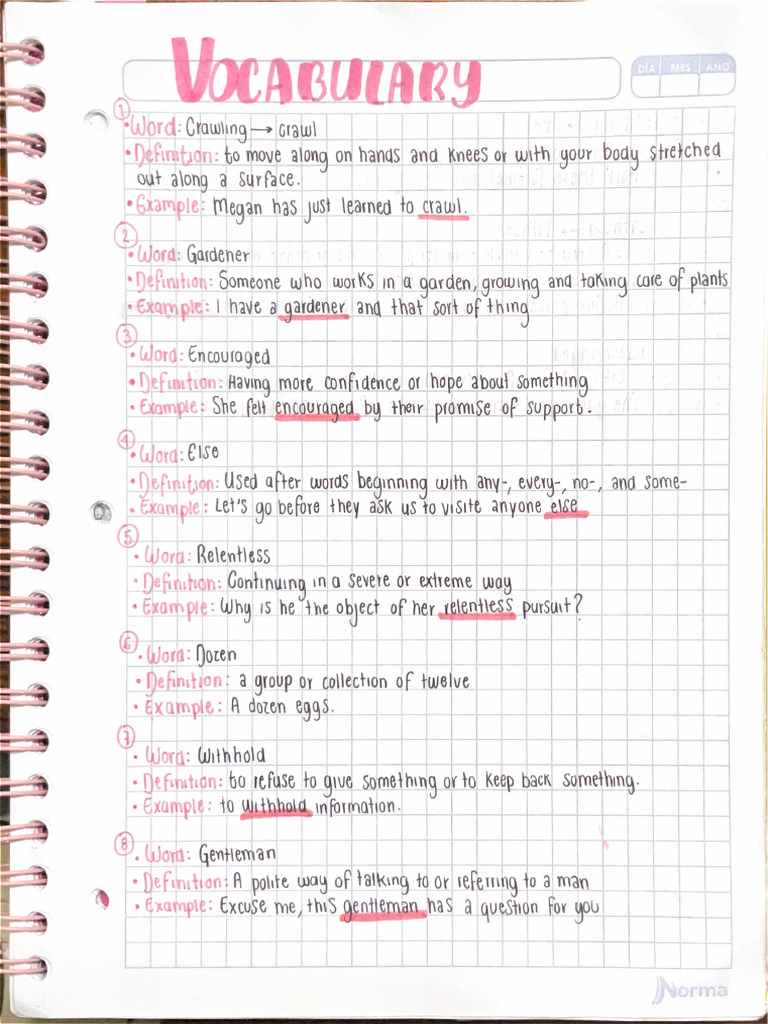 VOCABULARY
DÍA MES AÑO
①
• Word: Crawling → crawl
• Definition: to move along on hands and knees or with your body stretched
out along a surface.
• Example: Megan has just learned to crawl.
②
• Word: Gardener
• Definition: Someone who works in a garden, growing and taking care of plants
• Example: I have a gardener and that sort of thing
③
• Word: Encouraged
• Definition: Having more confidence or hope about something
• Example: She felt encouraged by their promise of support.
④
• Word: Else
• Definition: Used after words beginning with any-, every-, no-, and some-
• Example: Let's go before they ask us to visite anyone else
⑤
• Word: Relentless
• Definition: Continuing in a severe or extreme way
• Example: Why is he the object of her relentless pursuit?
⑥
• Word: Dozen
• Definition: a group or collection of twelve
• Example: A dozen eggs.
⑦
• Word: Withhold
• Definition: to refuse to give something or to keep back something.
• Example: to withhold information.
⑧
• Word: Gentleman
• Definition: A polite way of talking to or referring to a man
• Example: Excuse me, this gentleman has a question for you
Norma